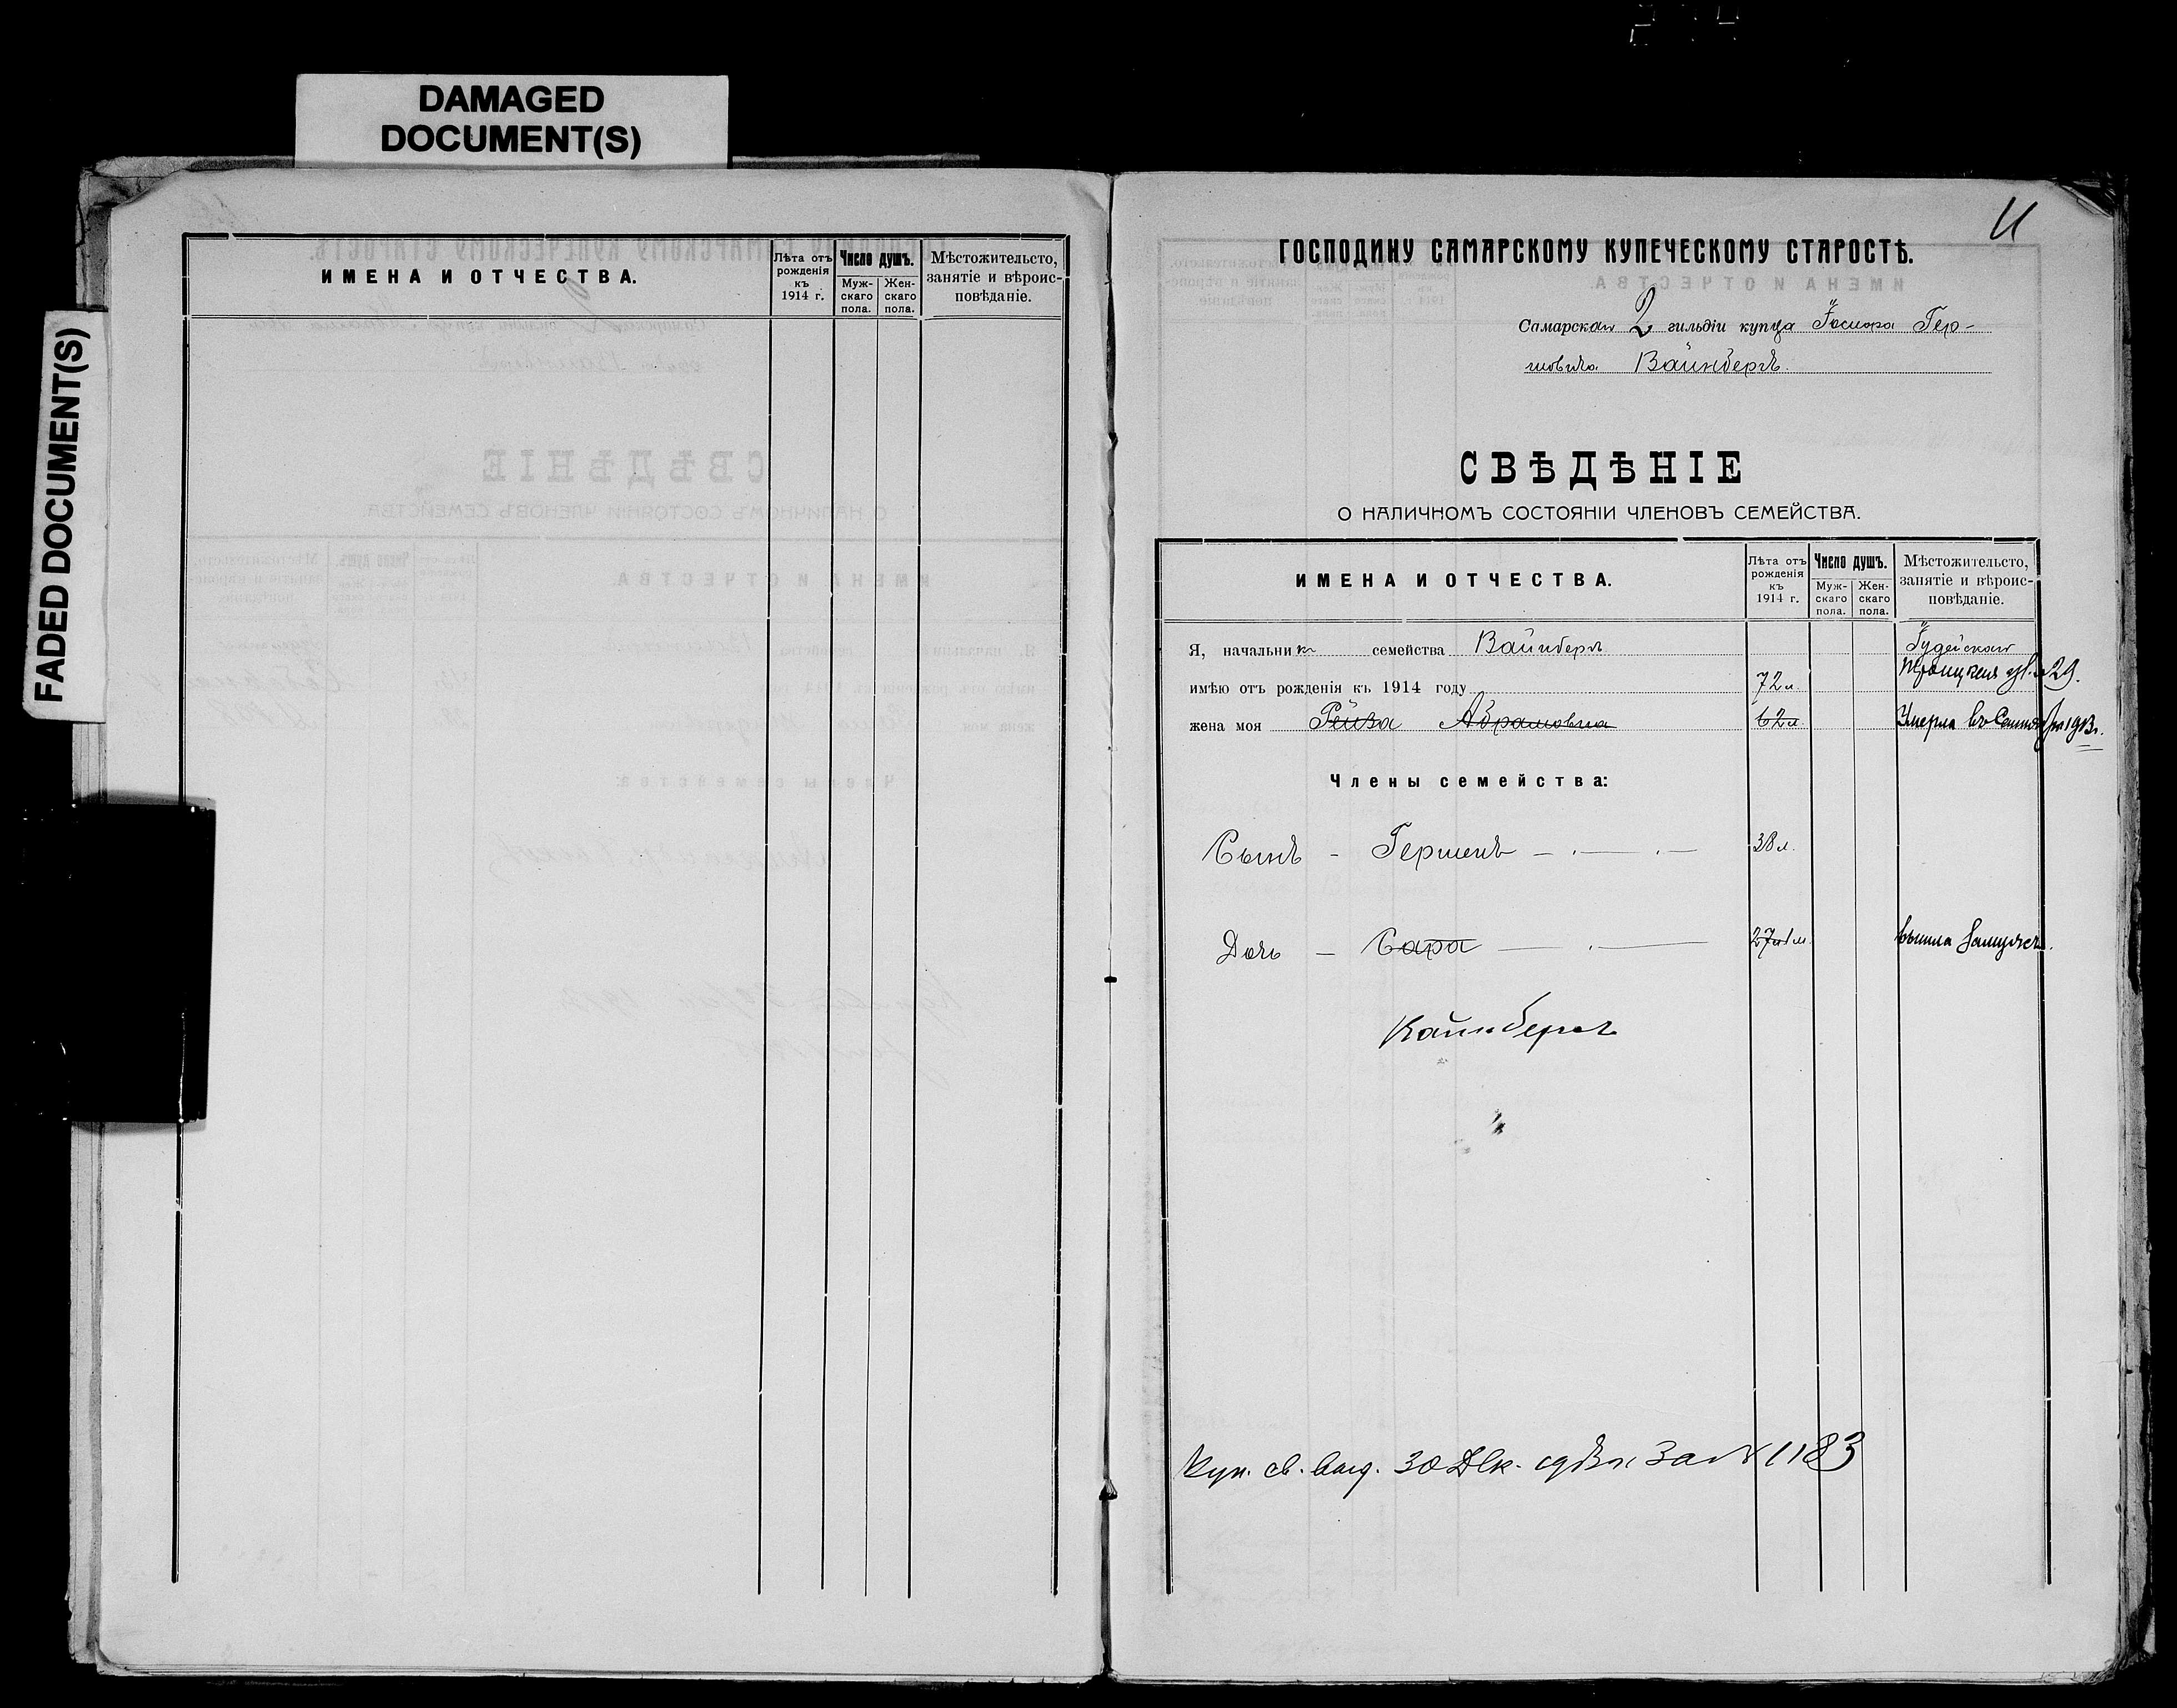 DAMAGED
DOCUMENT(S)
FADED DOCUMENT(S)
ИМЕНА И ОТЧЕСТВА.
Лѣта отъ рожденія къ 1914 г.
Число душъ.
Муж-скаго пола.
Жен-скаго пола.
Мѣстожительсто, занятіе и вѣроис-повѣданіе.
ГОСПОДИНУ САМАРСКОМУ КУПЕЧЕСКОМУ СТАРОСТѢ.
Самарскаго 2 гильдіи купца Гер-
шовича Вайнбергъ.
СВѢДѢНІЕ
О НАЛИЧНОМЪ СОСТОЯНІИ ЧЛЕНОВЪ СЕМЕЙСТВА.
ИМЕНА И ОТЧЕСТВА.
Лѣта отъ рожденія къ 1914 г.
Число душъ.
Муж-скаго пола.
Жен-скаго пола.
Мѣстожительсто, занятіе и вѣроис-повѣданіе.
Я, начальникъ семейства Вайнбергъ Іудейскаго
имѣю отъ рожденія къ 1914 году 72 л. Троицкая ул. 29.
жена моя Рейза Абрамовна 62 л. Умерла въ 1913 г.
Члены семейства:
Сынъ - Гершенъ 38 л.
Дочь - Сара 27 л. вышла замужъ.
Вайнбергъ
Куп. св. выд. 30 Дек. за № 1183